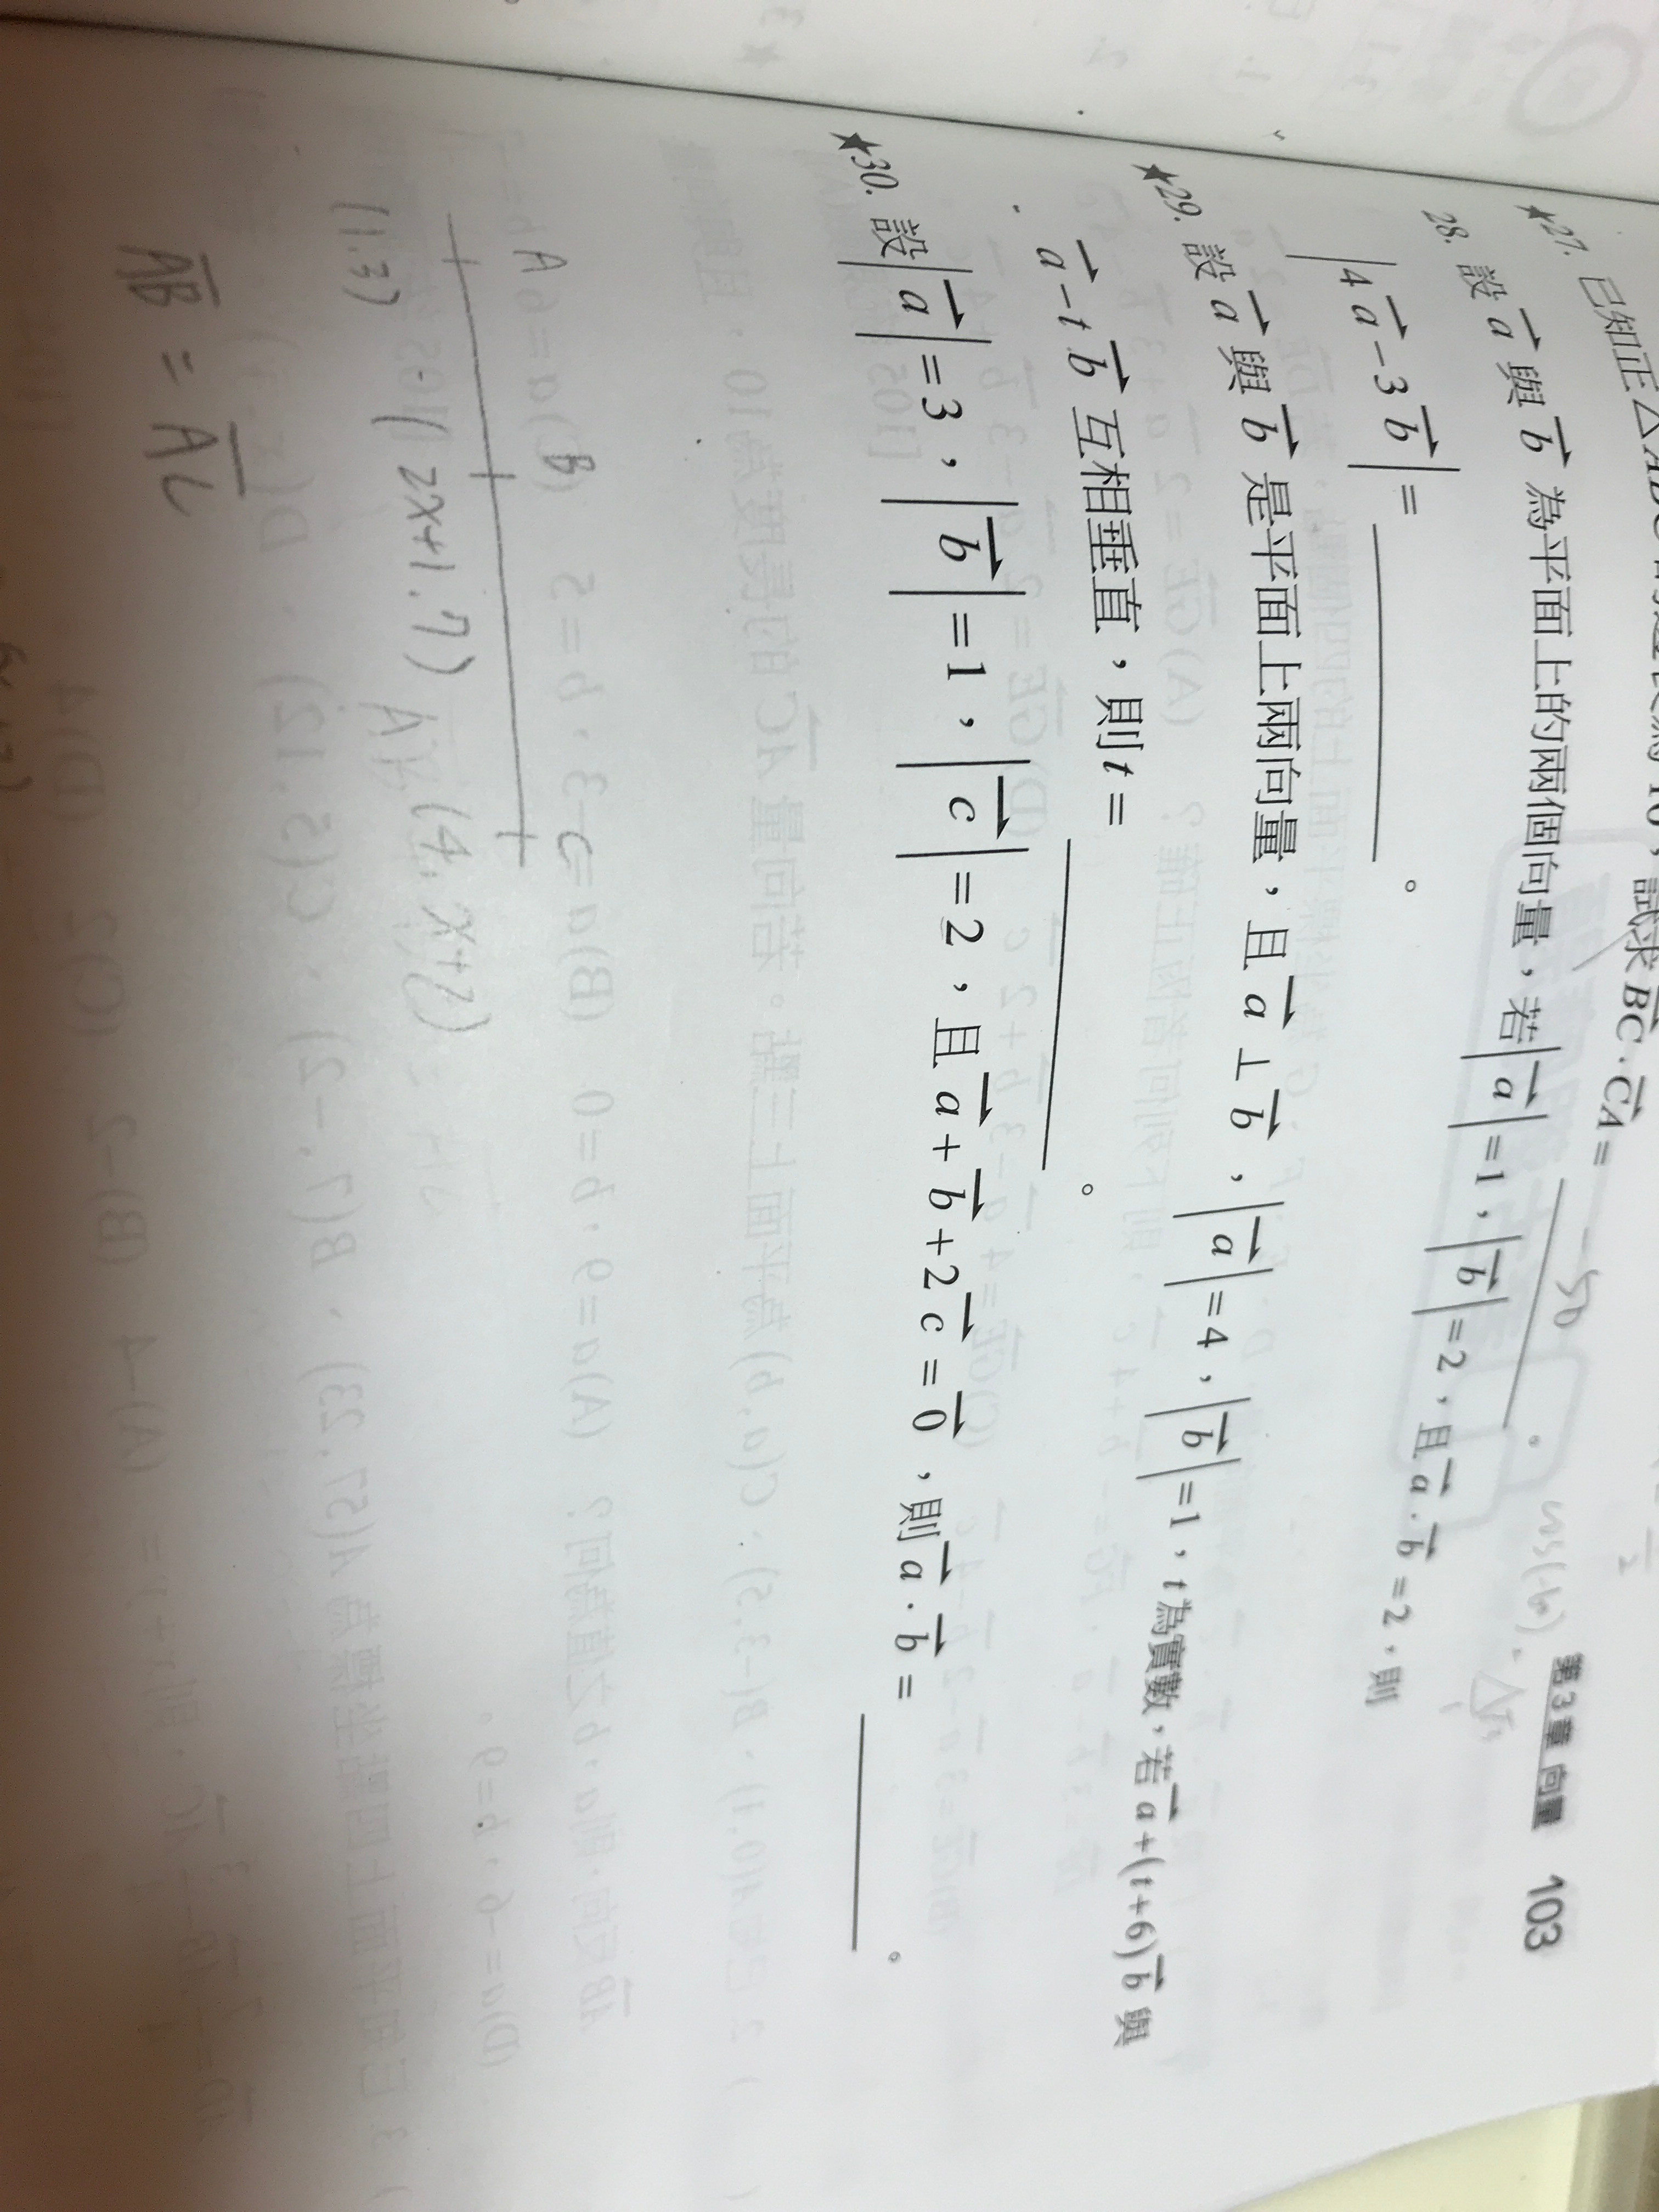 第3章 向量 103
★27. 已知正△ABC的邊長為10，試求$\overrightarrow{BC}\cdot\overrightarrow{CA}$= -50 。
28. 設$\vec{a}$與$\vec{b}$為平面上的兩個向量，若|$\vec{a}$|=1，|$\vec{b}$|=2，且$\vec{a}\cdot\vec{b}$=2，則
|4$\vec{a}$-3$\vec{b}$|= 。
★29. 設$\vec{a}$與$\vec{b}$是平面上兩向量，且$\vec{a}$⊥$\vec{b}$，|$\vec{a}$|=4，|$\vec{b}$|=1，t為實數，若$\vec{a}$+(t+6)$\vec{b}$與
$\vec{a}$-t$\vec{b}$互相垂直，則t= 。
★30. 設|$\vec{a}$|=3，|$\vec{b}$|=1，|$\vec{c}$|=2，且$\vec{a}$+$\vec{b}$+2$\vec{c}$=$\vec{0}$，則$\vec{a}\cdot\vec{b}$= 。
A B C
(1.3) (2x+1.7) (4.x+2)
$\overline{AB}$ = $\overline{AC}$